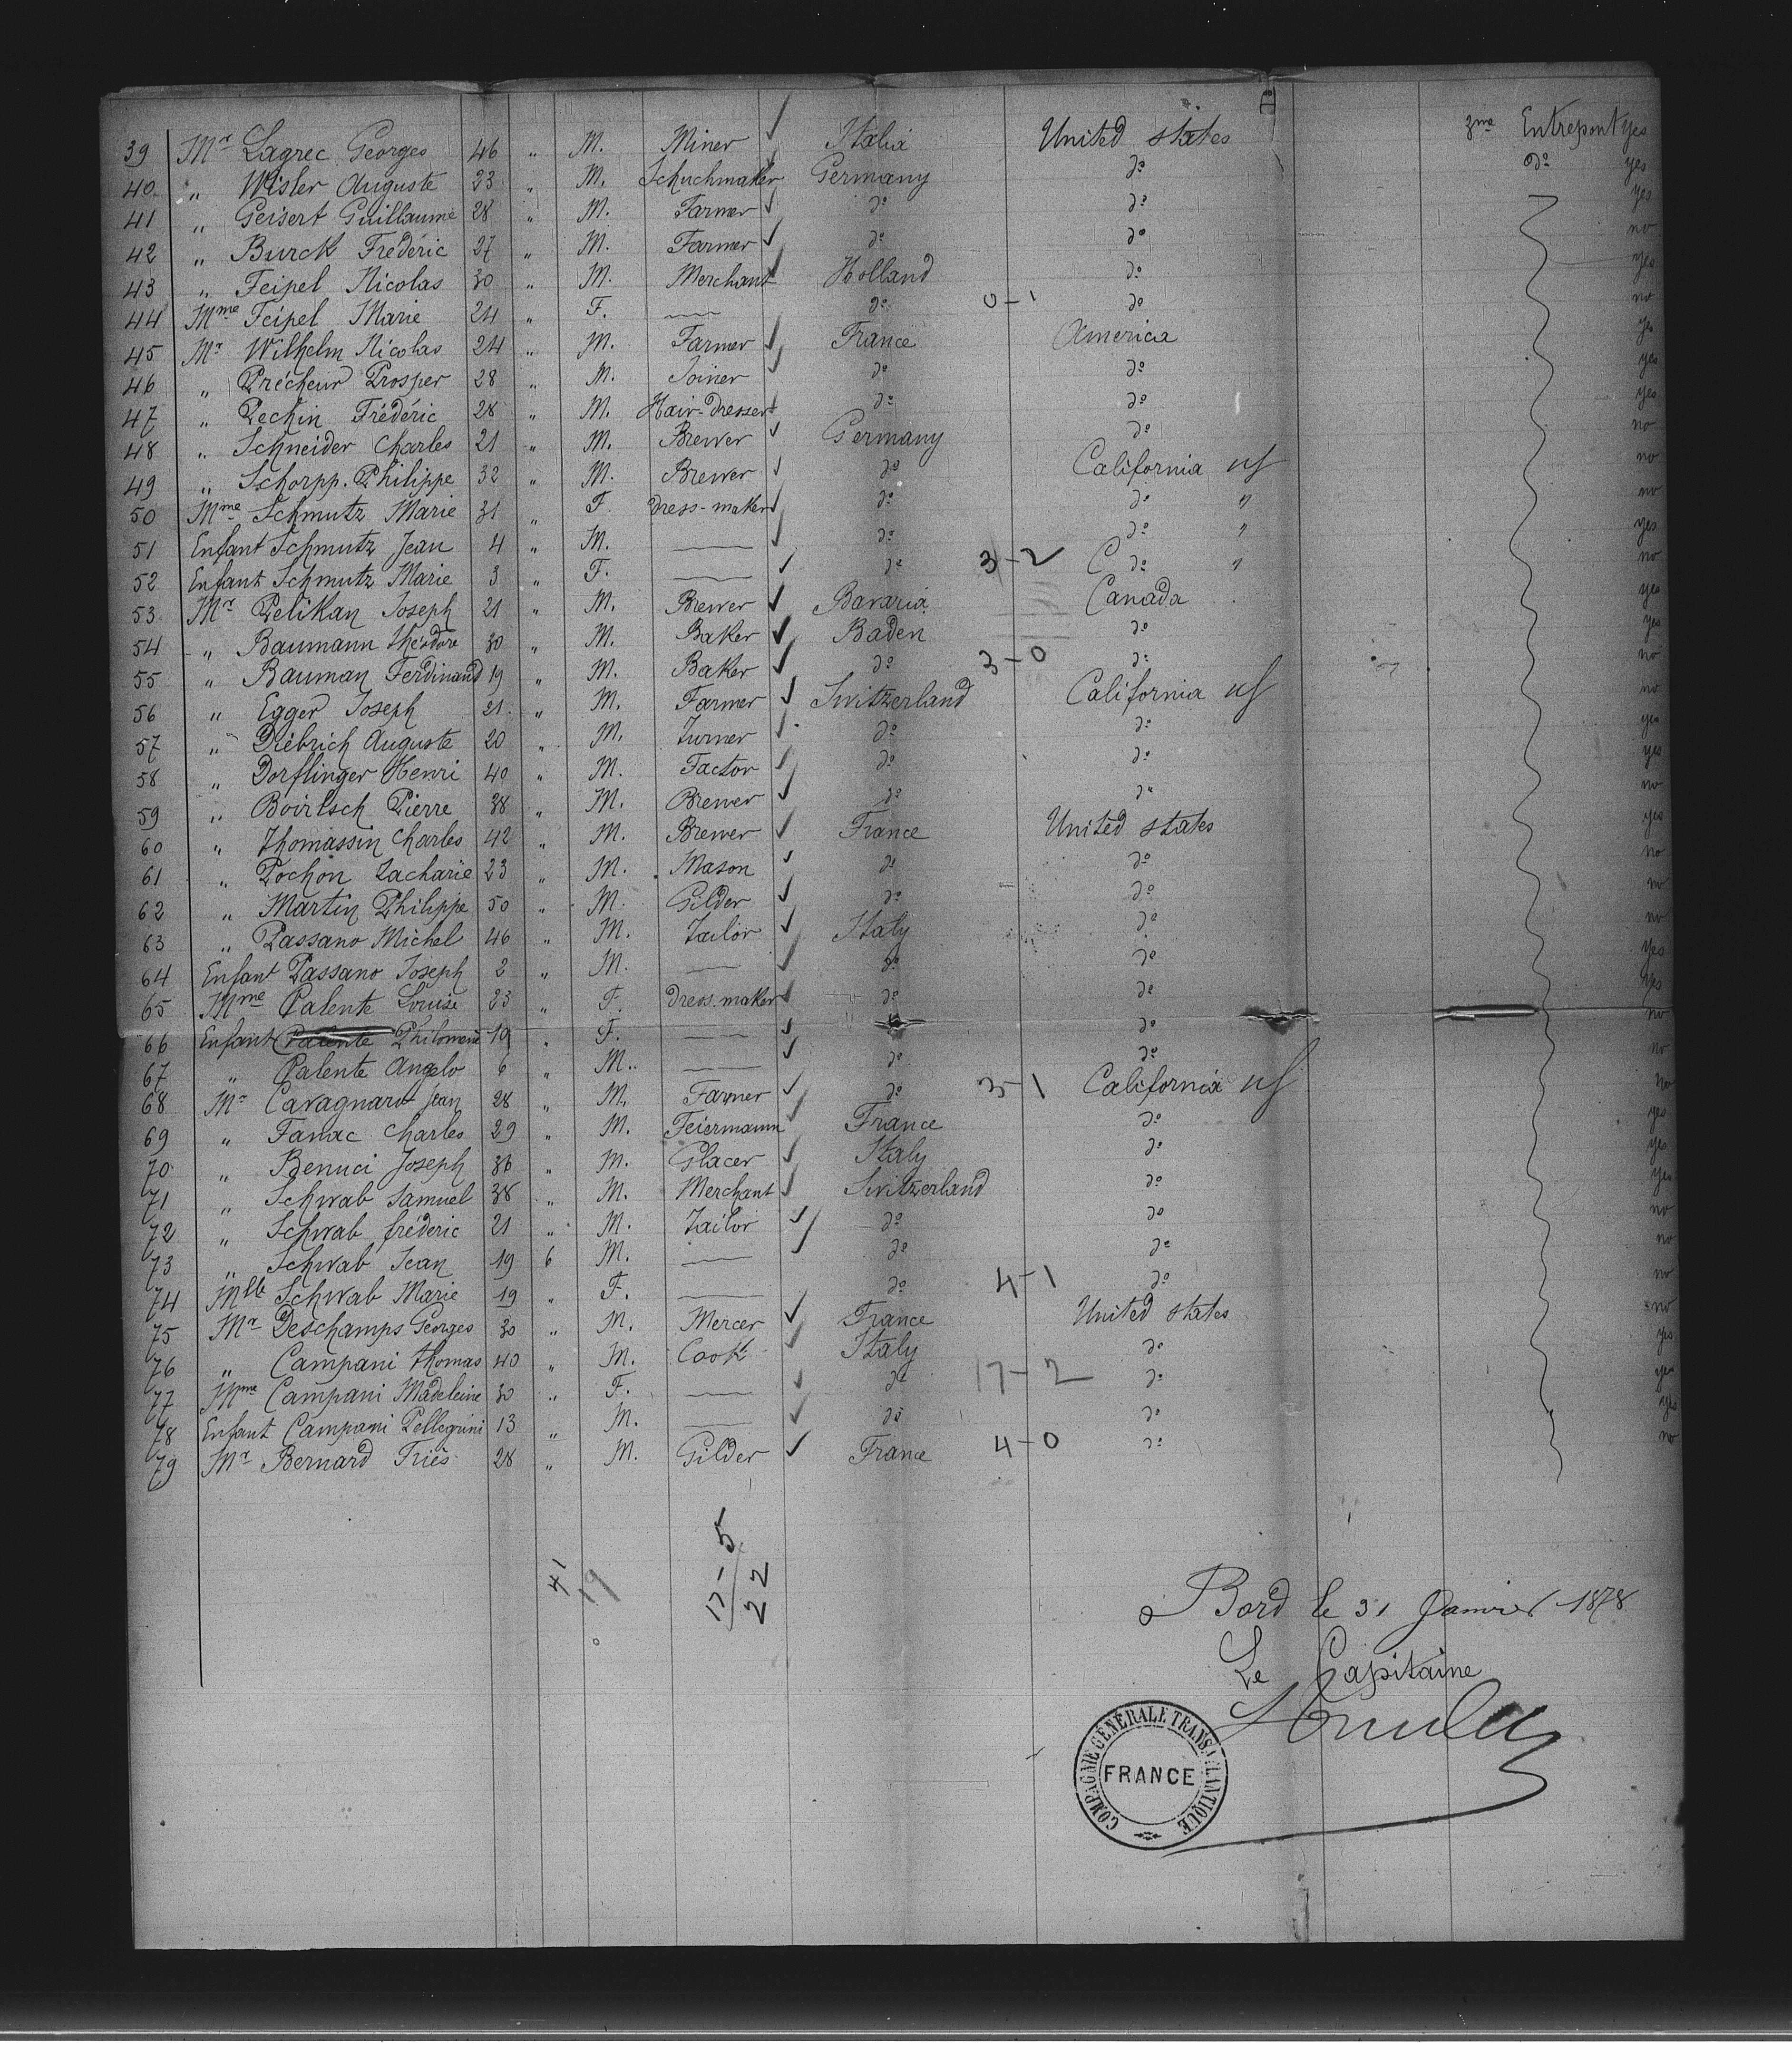 39 Mr Lagrec Georges 46 " M. Miner Italia United States 3me Entrepont yes
40 " Wisler Auguste 23 " M. Schuchmaker Germany do do yes
41 " Geisert Guillaume 28 " M. Farmer do do yes
42 " Burck Frédéric 27 " M. Farmer do do no
43 " Feipel Nicolas 30 " M. Merchant Holland do yes
44 Mme Feipel Marie 24 " F. — do 0-1 do no
45 Mr Wilhelm Nicolas 24 " M. Farmer France America yes
46 " Précheur Prosper 28 " M. Joiner do do yes
47 " Pechin Frédéric 28 " M. Hair-dresser do do yes
48 " Schneider Charles 21 " M. Brewer Germany do no
49 " Schorpp. Philippe 32 " M. Brewer do California us no
50 Mme Schmutz Marie 31 " F. dress-maker do do " no
51 Enfant Schmutz Jean 4 " M. — do do " yes
52 Enfant Schmutz Marie 3 " F. — do 3-2 do " no
53 Mr Pelikan Joseph 21 " M. Brewer Bavaria Canada yes
54 " Baumann théodore 30 " M. Baker Baden do yes
55 " Bauman Ferdinand 19 " M. Baker do 3-0 do no
56 " Egger Joseph 21 " M. Farmer Switzerland California us no
57 " Diébrich Auguste 20 " M. Turner do do yes
58 " Dorflinger Henri 40 " M. Factor do do yes
59 " Boirtsch Pierre 38 " M. Brewer do do no
60 " Thomassin Charles 42 " M. Brewer France United states yes
61 " Pochon Zacharie 23 " M. Mason do do no
62 " Martin Philippe 50 " M. Gilder do do no
63 " Passano Michel 46 " M. Tailor Italy do no
64 Enfant Passano Joseph 2 " M. — do do yes
65 Mme Palente Louise 23 " F. dress-maker do do yes
66 Enfant Palente Philomene 19 " F. — do do no
67 " Palente Angelo 6 " M. — do do no
68 Mr Cavagnaro Jean 28 " M. Farmer do 3-1 California us no
69 " Fanac Charles 29 " M. Feiermann France do yes
70 " Benuci Joseph 36 " M. Glacer Italy do yes
71 " Schwab Samuel 38 " M. Merchant Switzerland do yes
72 " Schwab fréderic 21 " M. Tailor do do no
73 " Schwab Jean 19 6 M. — do do no
74 Mlle Schwab Marie 19 " F. — do 4-1 do no
75 Mr Deschamps Georges 30 " M. Mercer France United states no
76 " Campani thomas 40 " M. Cook Italy do yes
77 Mme Campani Madeleine 30 " F. — do 17-2 do yes
78 Enfant Campani Pellegrini 13 " M. — do do yes
79 Mr Bernard Friès 28 " M. Gilder France 4-0 do no
41
19
17-5
22
à Bord le 31 Janvier 1878
Le Capitaine
COMPAGNIE GÉNÉRALE TRANSATLANTIQUE
FRANCE